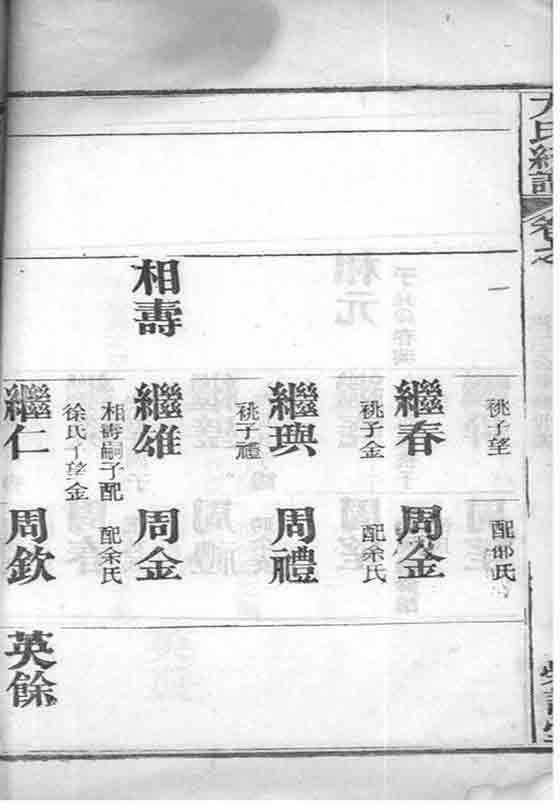 氏統譜 卷之
一
祧子望
配邵氏
繼春
周金
祧子金
配余氏
繼璵
周禮
祧子禮
相壽
繼雄
周金
相壽嗣子配
徐氏子望金
配余氏
繼仁
周欽
英餘